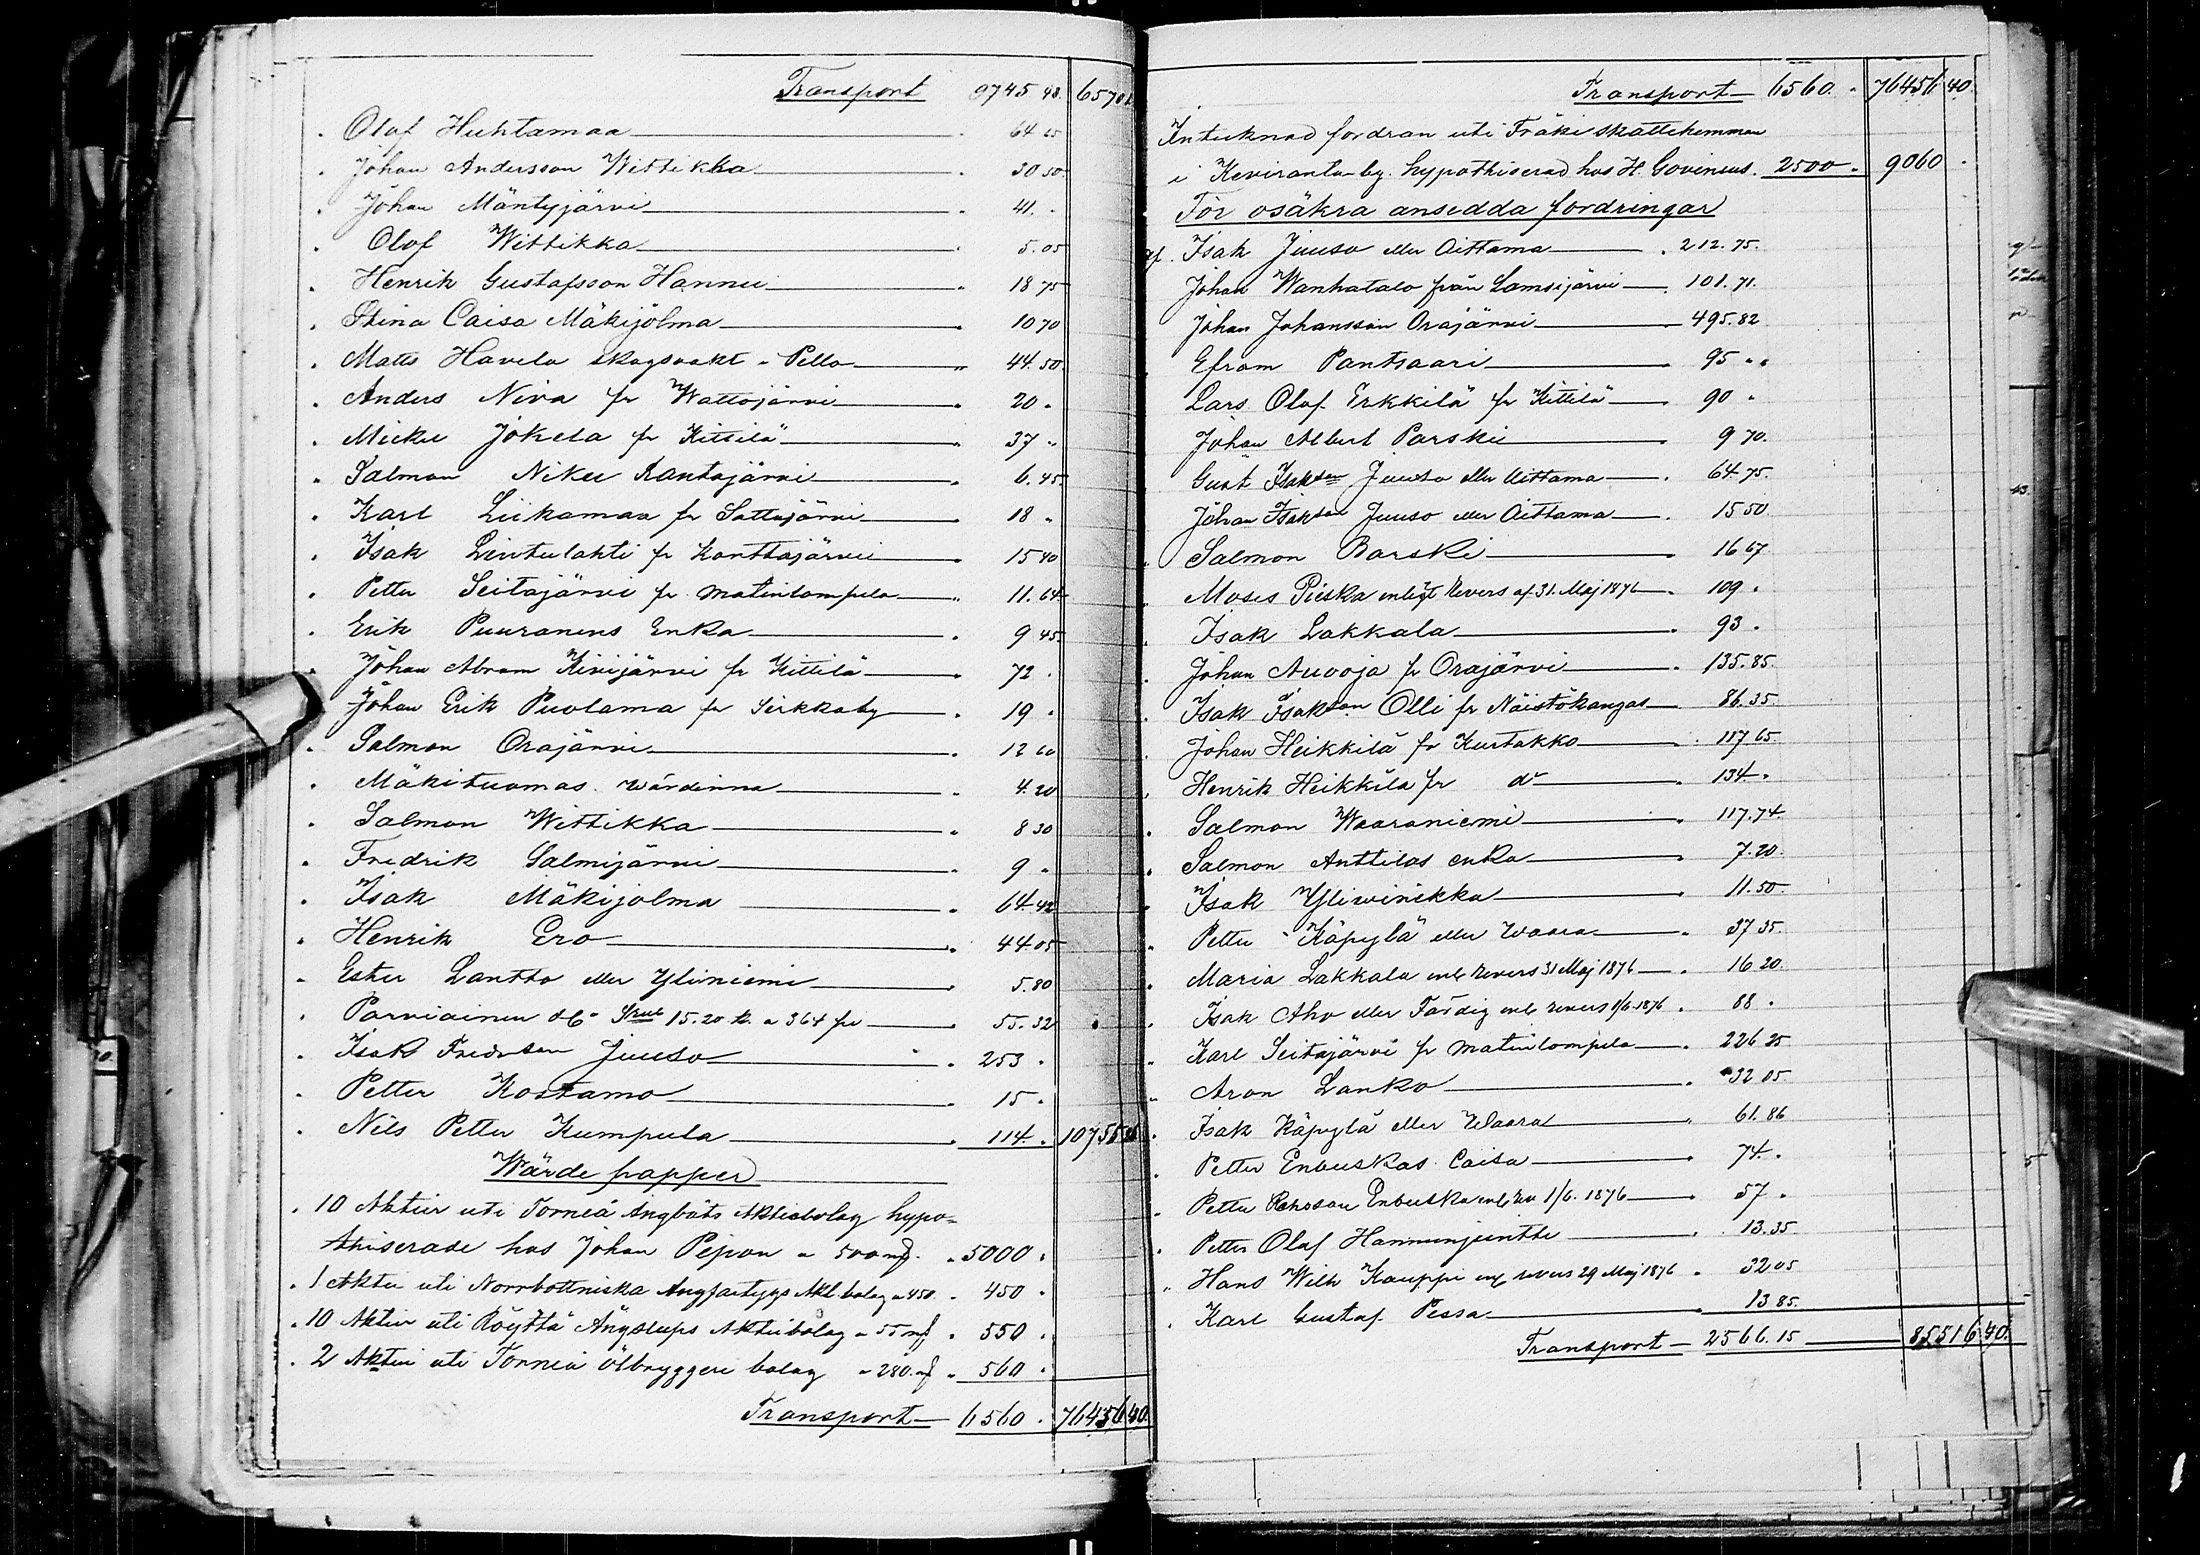 Transport 9745 48. 6570
" Olof Huhtamaa " 64 65
" Johan Andersson Wittikka " 30 50
" Johan Mäntyjärvi " 41. "
" Olof Wittikka " 5.05
" Henrik Gustafsson Hannu " 18 75
" Stina Caisa Mäkijolma " 10 70
" Matts Havela skogsvakt i Pello " 44.50
" Anders Niva fr Wattojärvi " 20 "
" Micku Jokela fr Kittilä " 37 "
" Salmon Niku Rantajärvi " 6.45
" Karl Liikamaa fr Sattajärvi " 18 "
" Isak Lintulahti fr Kanttajärvi " 15 40
" Petter Seitajärvi fr Matinlompola " 11.64
" Erik Puuranens Enka " 9 45
" Johan Abram Kinijärvi fr Kittilä " 72 "
" Johan Erik Puolama fr Sirkkaby " 19 "
" Salmon Orajärvi " 12 60
" Mäkituomas wärdinna " 4.20
" Salmon Wittikka " 8 30
" Fredrik Salmijärvi " 9 "
" Isak Mäkijolma " 64.42
" Henrik Ero " 44.05
" Ester Lantto eller Yliniemi " 5.80
" Parviainen &C 15.20 k. a 364 pr " 55.32
" Isak Fredrson Juuso " 253 "
" Petter Kostamo " 15 "
" Nils Petter Kumpula " 114. 10755
Wärde papper
" 10 Aktier uti Torneå Ångbåts Aktiebolag hypo-
thiserade hos Johan Pipon a 500 mf. " 5000 "
" 1 Aktie uti Norrbottniska Ångfartygs Akt. bolag a 450. " 450 "
" 10 Aktier uti Röyttä Ångslups Aktiebolag a 55 mf " 550 "
" 2 Aktier uti Torneå Ölbryggeri bolag a 280. mf " 560 "
Transport 6560 " 76456 40
Transport 6560 " 76456 40.
Intecknad fordran uti Fräki skattehemman
i Keviranta by. hypothiserad hos H. Govenius. 2500 " 9060 "
För osäkra ansedda fordringar
af Isak Juuso eller Aittama " 212.75.
Johan Wanhatalo från Lamsijärvi " 101.71.
Johan Johansson Orajärvi 495.82
Efram Pantsaari 95 " "
Lars Olof Erkkilä fr Kittilä " 90 "
Johan Albert Parski " 9 70.
Gust Isakson Juuso eller Aittama " 64 75.
Johan Isakson Juuso eller Aittama " 15 50
Salmon Barski " 16 67
" Moses Pieska enligt Revers af 31. Maj 1876 " 109 "
" Isak Lakkala " 93 "
" Johan Auvoja fr Orajärvi " 135.85.
" Isak Isakson Olli fr Näistökangas 86.35
" Johan Heikkilä fr Kurtakko " 117 65.
" Henrik Heikkilä fr do " 134 "
" Salmon Waaraniemi " 117.74
" Salmon Anttilas enka " 7.20.
" Isak Yliwinikka " 11.50.
" Petter Käpylä eller Waara " 37 35.
" Maria Lakkala enl Revers 31 Maj 1876 " 16 20.
" Isak Aho eller Färdig enl revers 1/6 1876 " 88 "
" Karl Seitajärvi fr Matinlompola " 226 25
" Aron Lanko " 32 05.
" Isak Käpylä eller Waara " 61.86
" Petter Enbuskas Caisa " 74. "
" Petter Enbuska enl Rev 1/6. 1876 " 57 "
" Petter Olof Hannunjuntti " 13.35
" Hans Wilh Kauppi enl revers 29 Maj 1876 " 32 05
" Karl Gustaf Pessa " 13 85.
Transport 2566.15 85516 40.